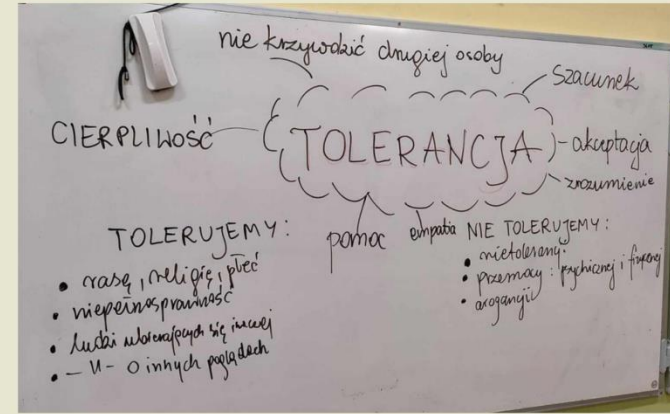 nie krzywdzić drugiej osoby
szacunek
CIERPLIWOŚĆ
TOLERANCJA
- akceptacja
zrozumienie
pomoc
empatia
TOLERUJEMY:
• rasę, religię, płeć
• niepełnosprawność
• ludzi ubierających się inaczej
• - 11 - o innych poglądach
NIE TOLERUJEMY:
• nietolerancji
• przemocy: psychicznej i fizycznej
• arogancji